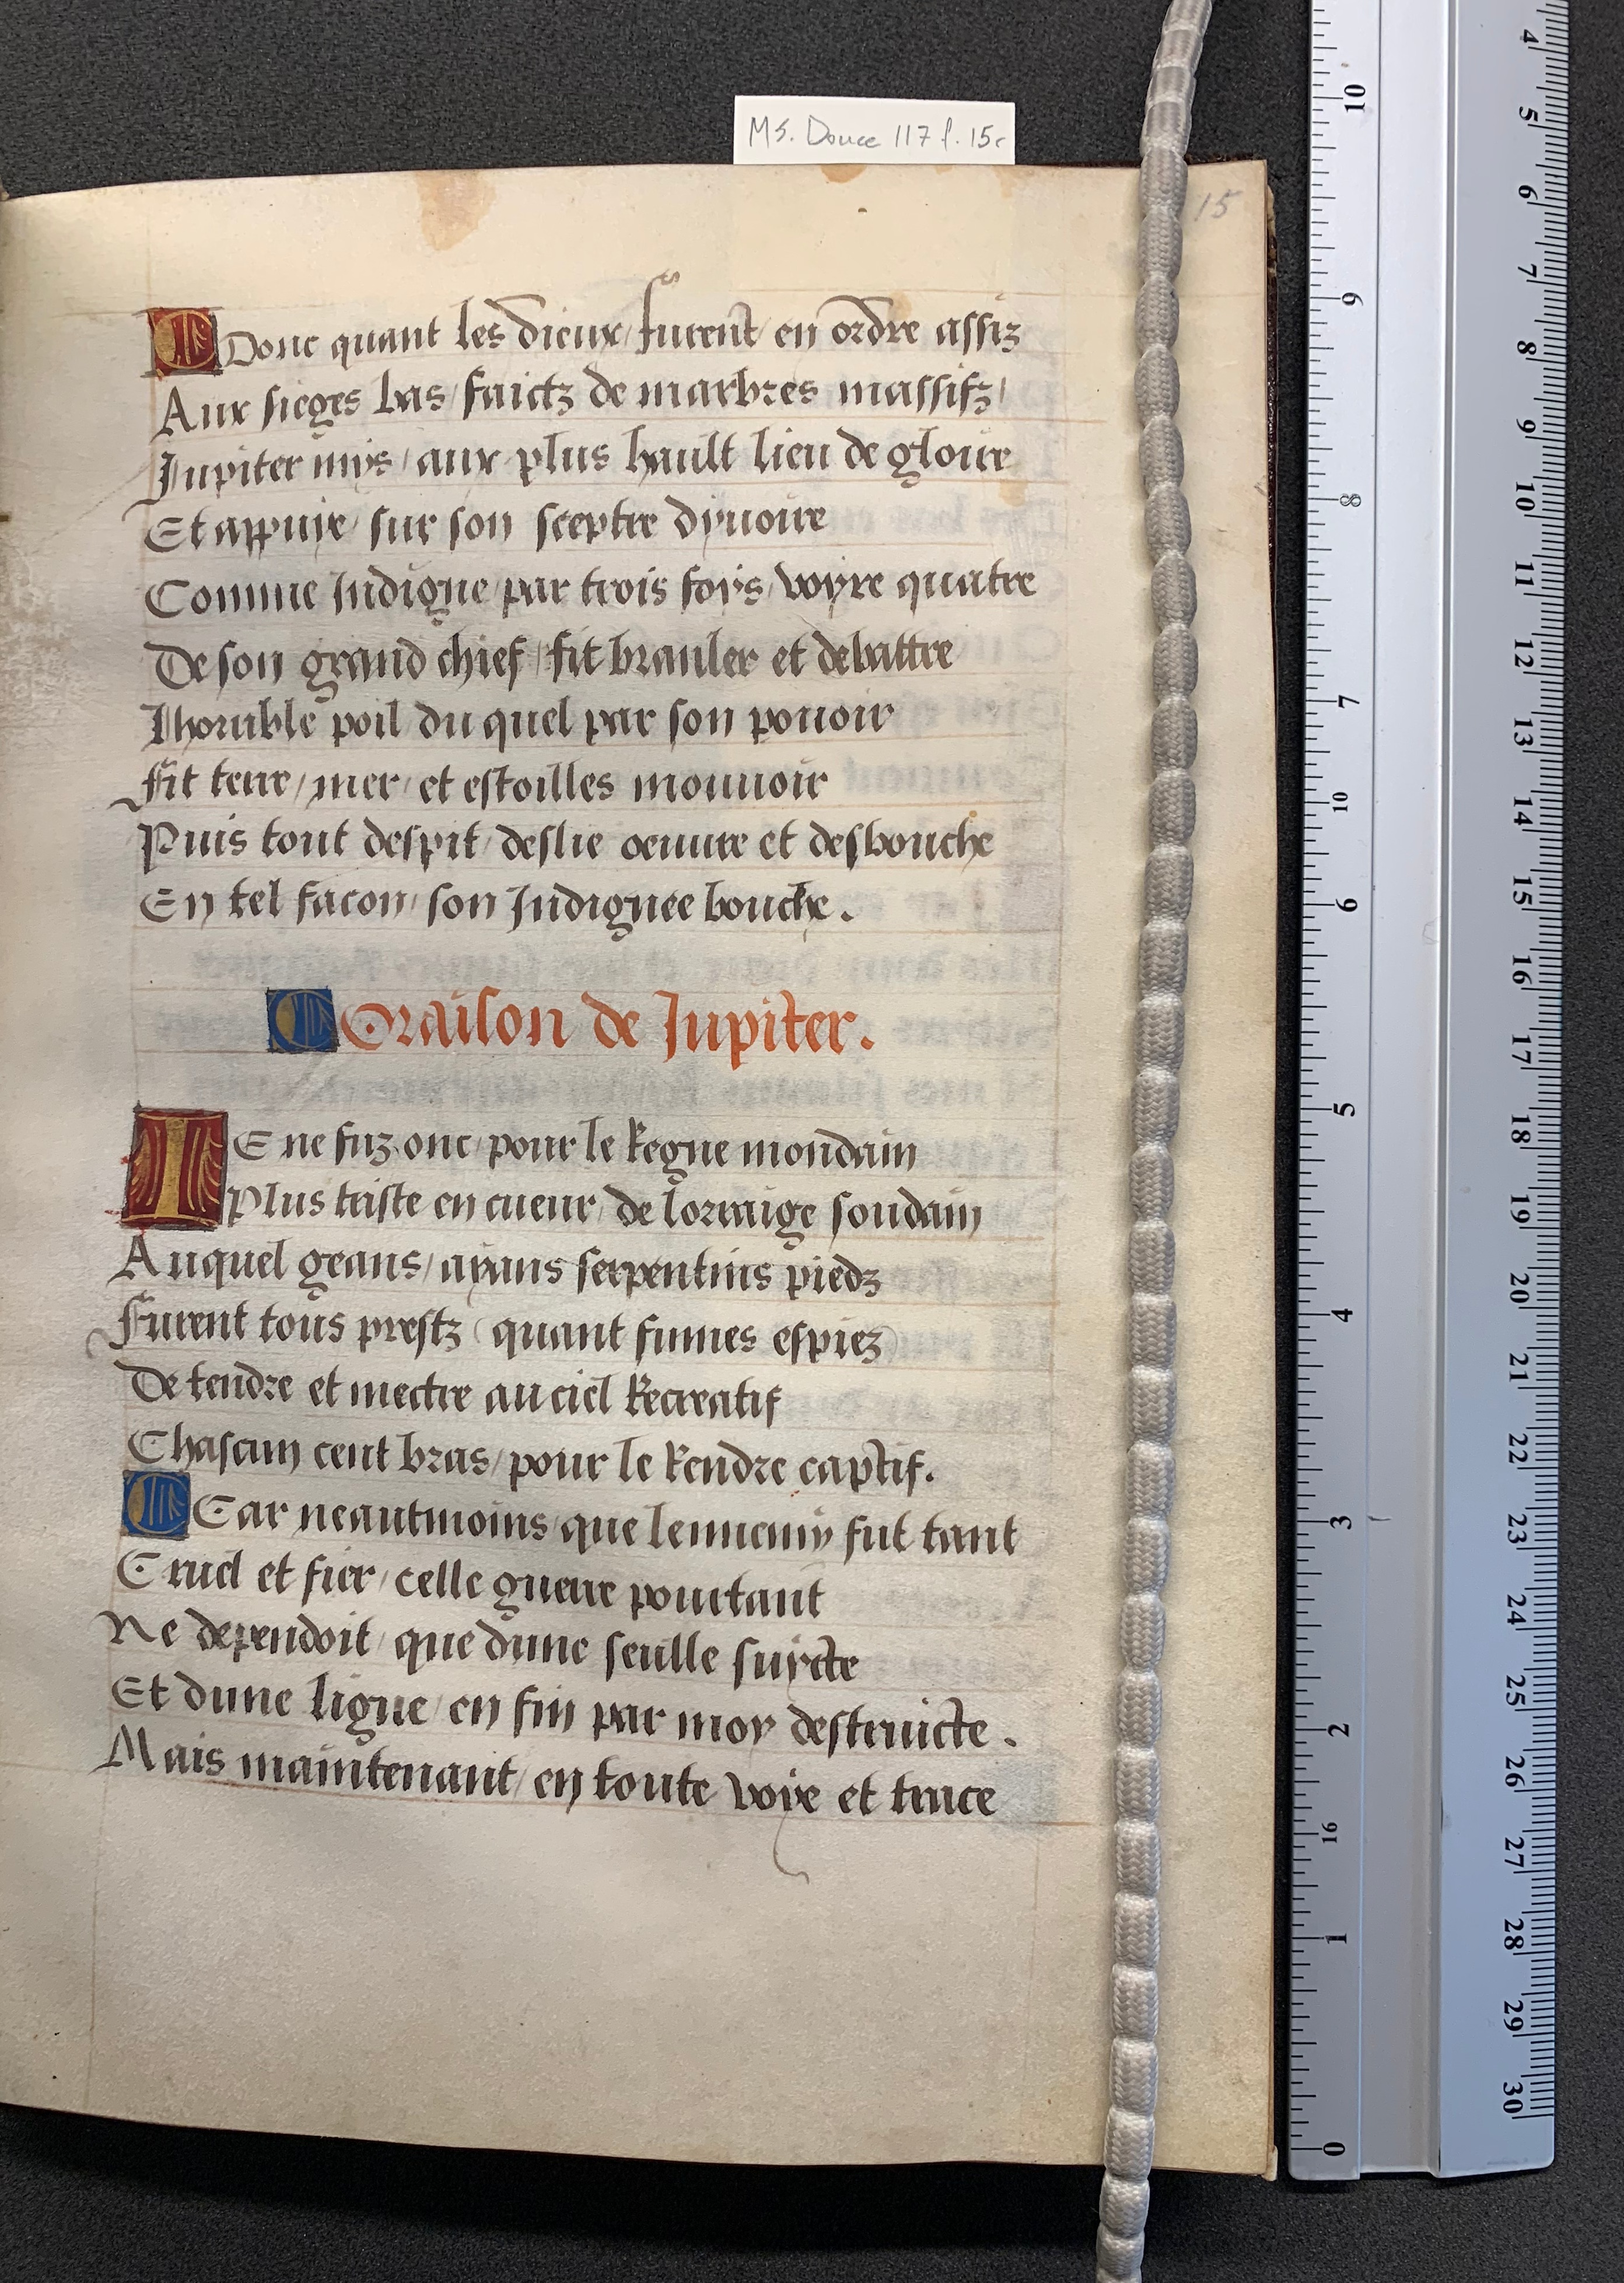 MS. Douce 117 f. 15r
15
Donc quant les dieux / furent / en ordre assiz
Aux sieges bas / faictz de marbres massifz /
Jupiter mys / aux plus hault lieu de gloire
Et appuye / sur son sceptre dyuoire
Comme Indigne / par trois foys / voyre quatre
De son grand chief / fit branler et debattre
Lhorrible poil / du quel par son pouoir
Fit terre / mer / et estoilles mouuoir
Puis tout despit / deslie oeuure et desbouche
En tel facon / son Indignee bouche.
Oraison de Jupiter.
IE ne fuz onc / pour le Regne mondain
Plus triste en cueur / de lorraige soudain
Auquel geans / ayans serpentins piedz
Furent tous prestz (quant fumes espiez)
De tendre et mectre au ciel Recreatif
Chascun cent bras / pour le Rendre captif.
Car neantmoins / que lennemy fut tant
Cruel et fier / celle guerre pourtant
Ne dependoit / que dune seulle suycte
Et dune ligne / en fin par moy destruicte.
Mais maintenant / en toute voye et trace
4
5
6
7
8
9
10
11
12
13
14
15
16
17
18
19
20
21
22
23
24
25
26
27
28
29
30
10
9
8
7
10
6
5
4
3
2
16
1
0